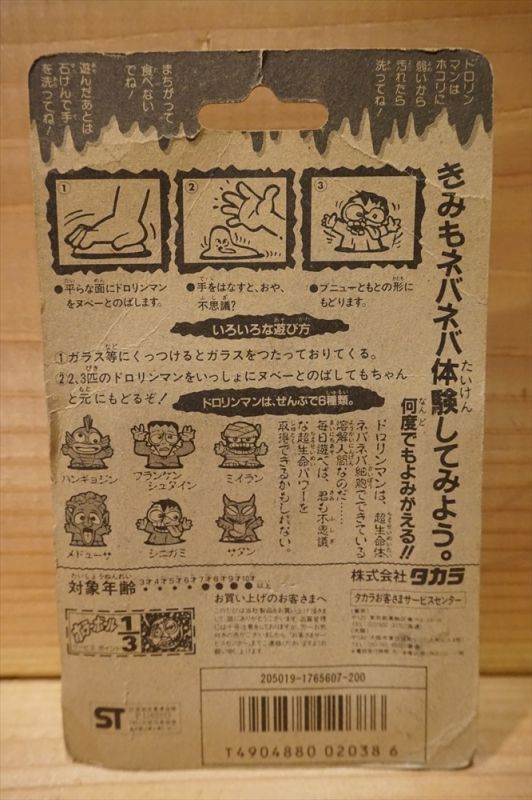 ドロリン
マンは
ホコリに
弱いから
汚れたら
洗ってね!
まちがって
食べない
でね!
遊んだあとは
石けんで手
を洗ってね!
きみもネバネバ体験してみよう。
何度でもよみがえる!!
①
●平らな面にドロリンマン
をヌベーとのばします。
②
●手をはなすと、おや、
不思議?
③
●プニューともとの形に
もどります。
いろいろな遊び方
①ガラス等にくっつけるとガラスをつたっておりてくる。
②2、3匹のドロリンマンをいっしょにヌベーとのばしてもちゃん
と元にもどるぞ!
ドロリンマンは、ぜんぶで6種類。
ハンギョジン
フランケン
シュタイン
ミイラン
メドューサ
シニガミ
サタン
ドロリンマンは、超生命体
ネバネバ細胞でできている
溶解人間なのだ……
毎日遊べば、君も不思議
な超生命パワーを
取得できるかもしれない。
対象年齢
3才4才5才6才7才8才9才10才以上
株式会社 タカラ
お買い上げのお客さまへ
タカラお客さまサービスセンター
1/3
ST
205019-1765607-200
T4904880 02038 6